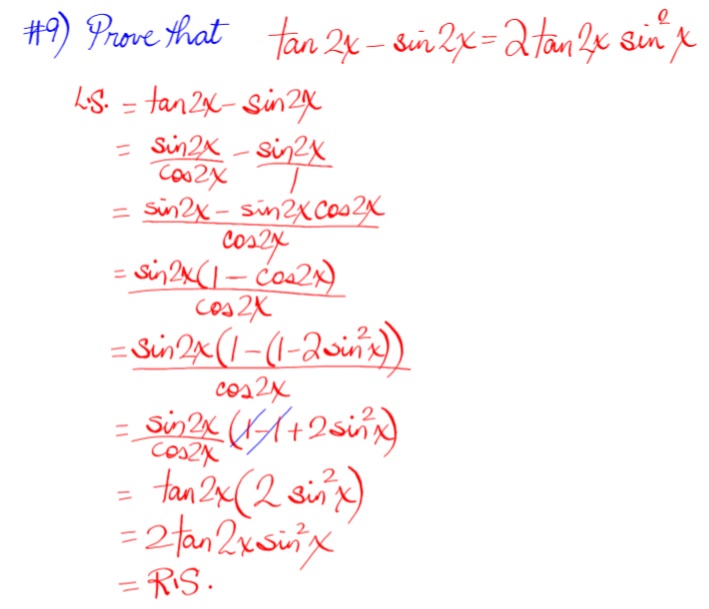 #9) Prove that tan 2x - sin 2x = 2 tan 2x sin²x
L.S. = tan 2x - sin 2x
= sin2x/cos2x - sin2x/1
= (sin2x - sin2x cos2x)/cos2x
= sin2x(1 - cos2x)/cos2x
= sin2x(1-(1-2sin²x))/cos2x
= sin2x/cos2x (1-1+2sin²x)
= tan2x(2 sin²x)
= 2tan2x sin²x
= R.S.